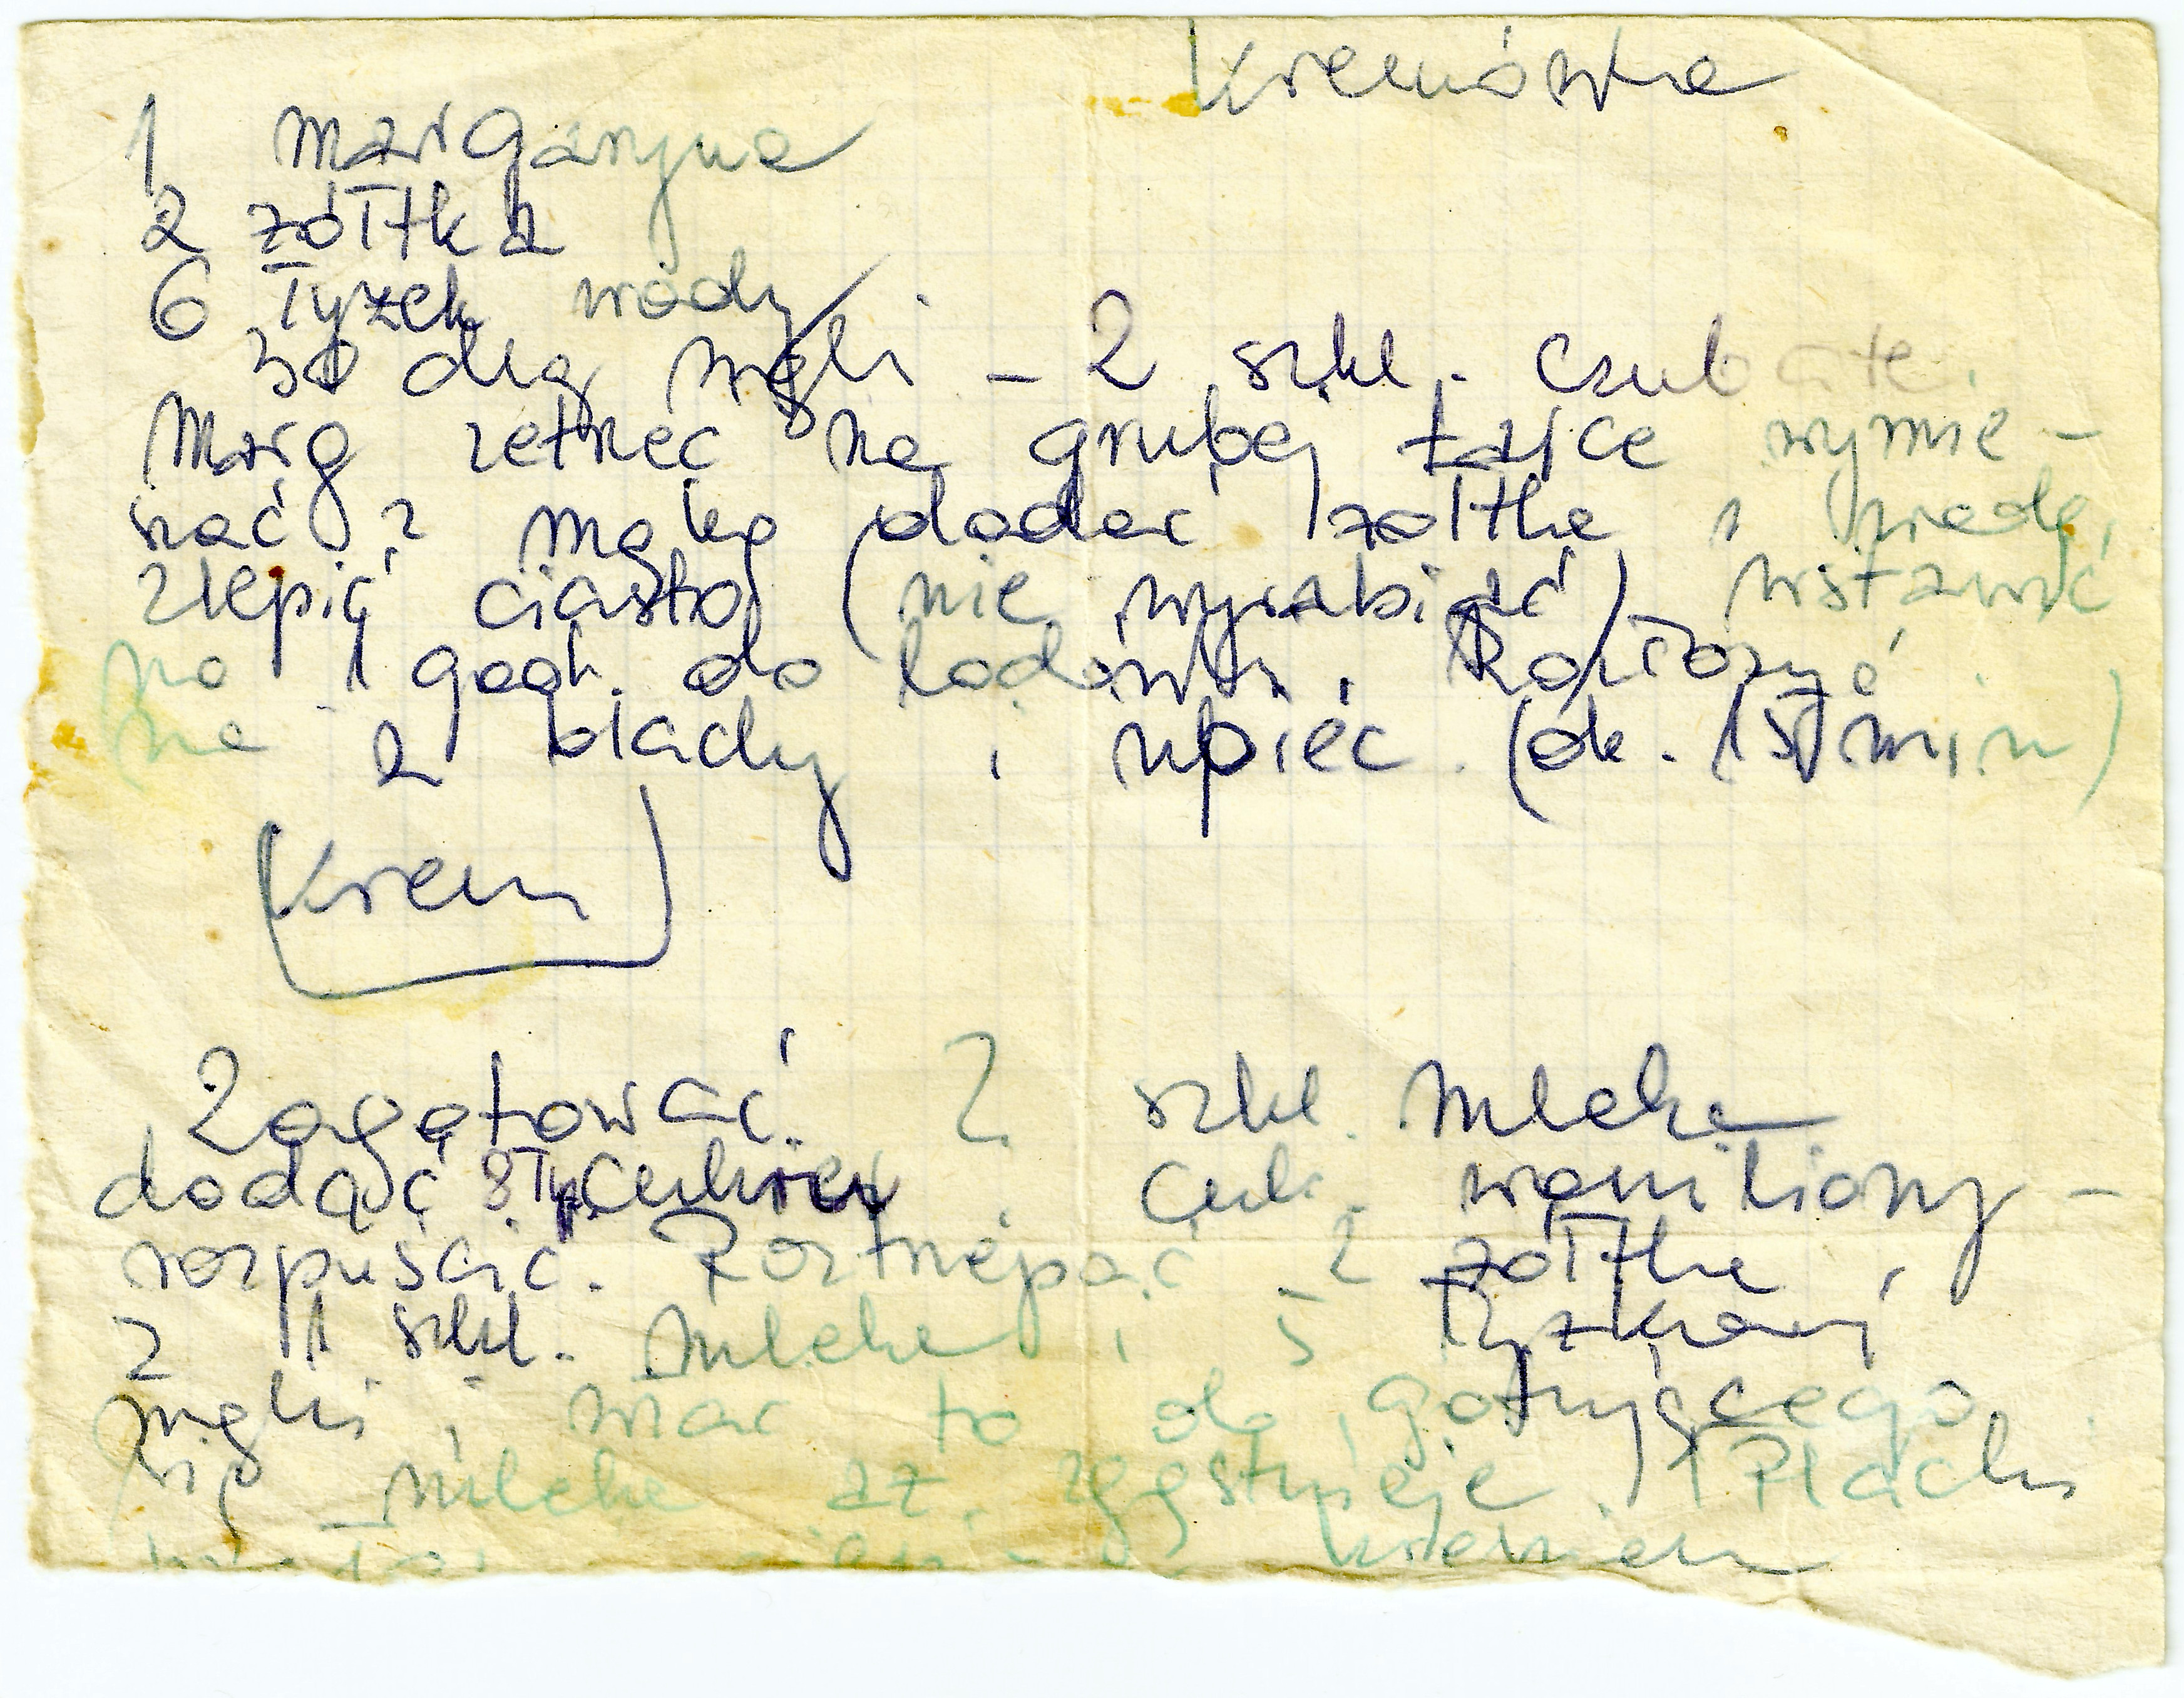 Kremówka
1 margaryna
2 żółtka
6 łyżek wody
50 dkg mąki - 2 szkl. czubate.
Marg zetrzeć na grubej tarce wymie-
szać z mąką dodać żółtka i
zlepić ciasto (nie wyrabiać) wstawić
na 1 godz. do lodówki. Rozłożyć
na 2 blachy i upiec. (ok. 15 min)
Krem
Zagotować 2 szkl. mleka
dodać 8 łyż. cukier cuk. waniliowy -
rozpuścić. Roztrzepać 2 żółtka
z 1 szkl. mleka i 5 łyżkami
mąki i wlać to do gotującego
się mleka aż zgęstnieje. Placki
kremem